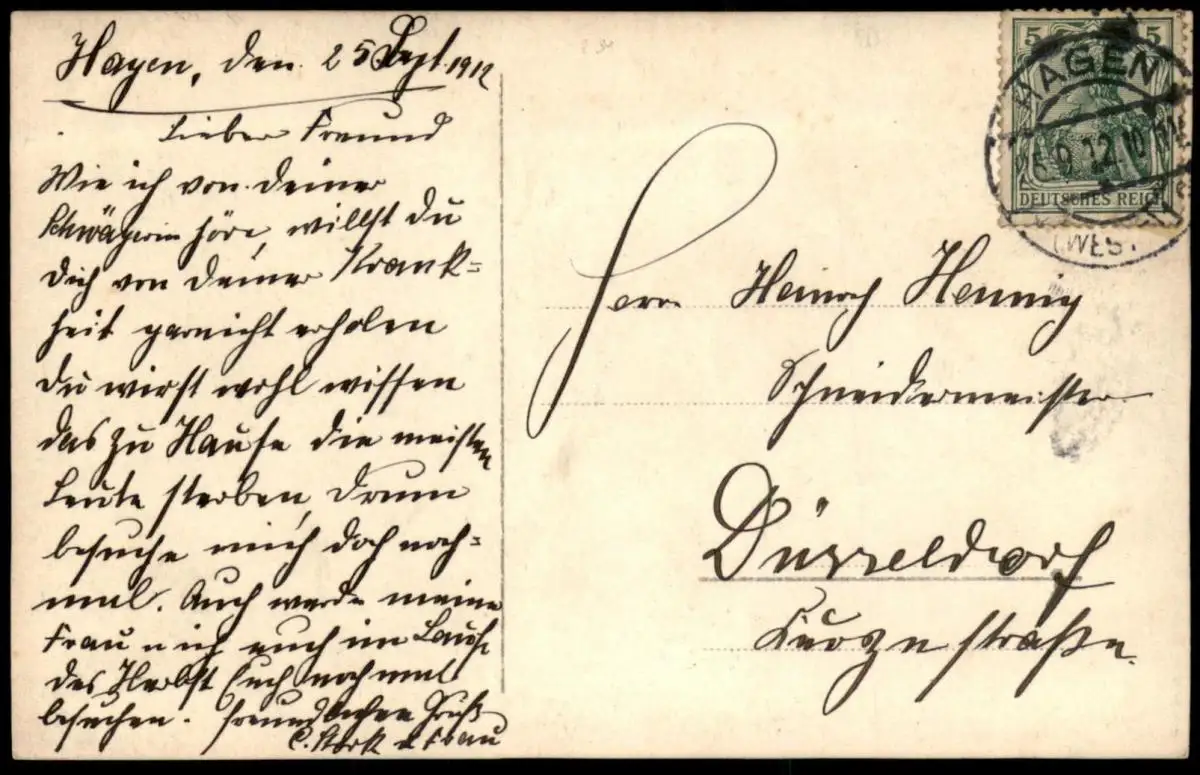 Hagen, den 25 Sept. 1912
Lieber Freund
Wie ich von deiner
Schwägerin höre, willst du
dich von deiner Krank=
heit garnicht erholen
du wirst wohl wissen
das zu Hause die meisten
Leute sterben, drum
besuche mich doch noch=
mal. Auch werde meine
Frau u ich euch im Laufe
des Herbst euch noch mal
besuchen. freundlichen Gruß
C. Stork u Frau
5 5
DEUTSCHES REICH
HAGEN
25.9.12.10
(WEST
Herrn Heinrich Hennig
Schneidermeister
Düsseldorf
Kurzestraße.